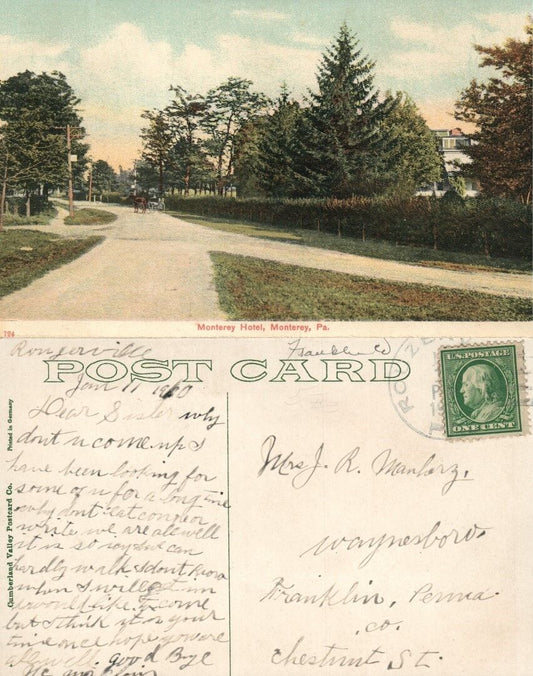 794
Monterey Hotel, Monterey, Pa.
Rouzerville
POST CARD
Franklin Co
ROUZE
U.S. POSTAGE
ONE CENT
Printed in Germany
Cumberland Valley Postcard Co.
Jan 11 1910
Dear Sister why
dont u come up I
have been looking for
some of u for a long time
why dont eat come or
write we are all well
it is so icy we can
hardly walk I dont know
when I will get in
I would like to come
but I think it is your
time once hope you are
all well. good Bye
Mrs J. R. Manherz,
Waynesboro.
Franklin, Penna
co.
Chestnut St.